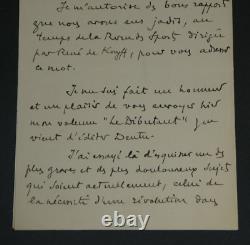 Je m'autorise des bons rapports
que nous avons eus jadis, au
temps de la Revue des Sports dirigée
par René de Knyff, pour vous adresser
ce mot.
Je me suis fait un honneur
et un plaisir de vous envoyer hier
mon volume "Le Débutant" que
vient d'éditer Dentu.
J'ai essayé là d'esquisser un des
plus graves et des plus douloureux sujets
qui soient actuellement, celui de
la nécessité d'une révolution dans
© ebay